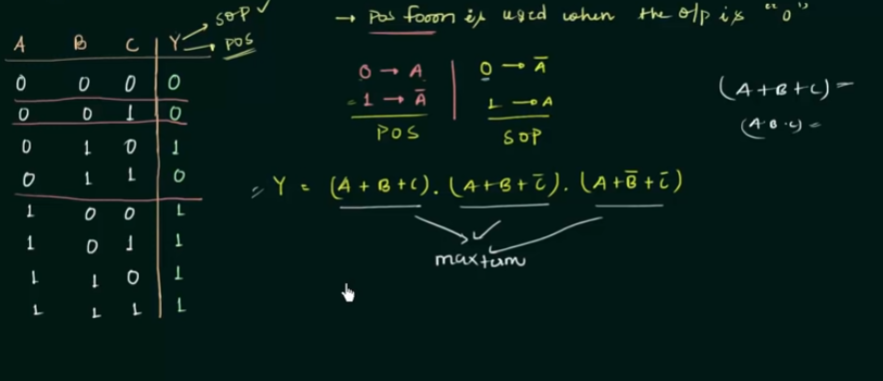 SOP ✓
A B C Y → POS
0 0 0 0
0 0 1 0
0 1 0 1
0 1 1 0
1 0 0 1
1 0 1 1
1 1 0 1
1 1 1 1
→ Pos form is used when the o/p is "0"
0 → A
1 → Ā
POS
0 → Ā
1 → A
SOP
(A+B+C) =
(A·B·C) =
Y = (A + B + C) . (A + B + C̄) . (A + B̄ + C̄)
maxterm